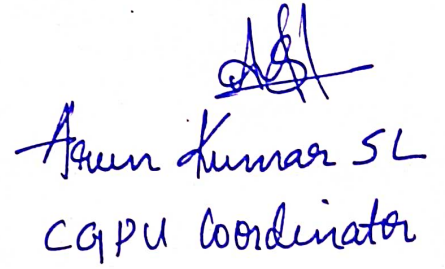 Arun Kumar SL
CGPU Coordinator